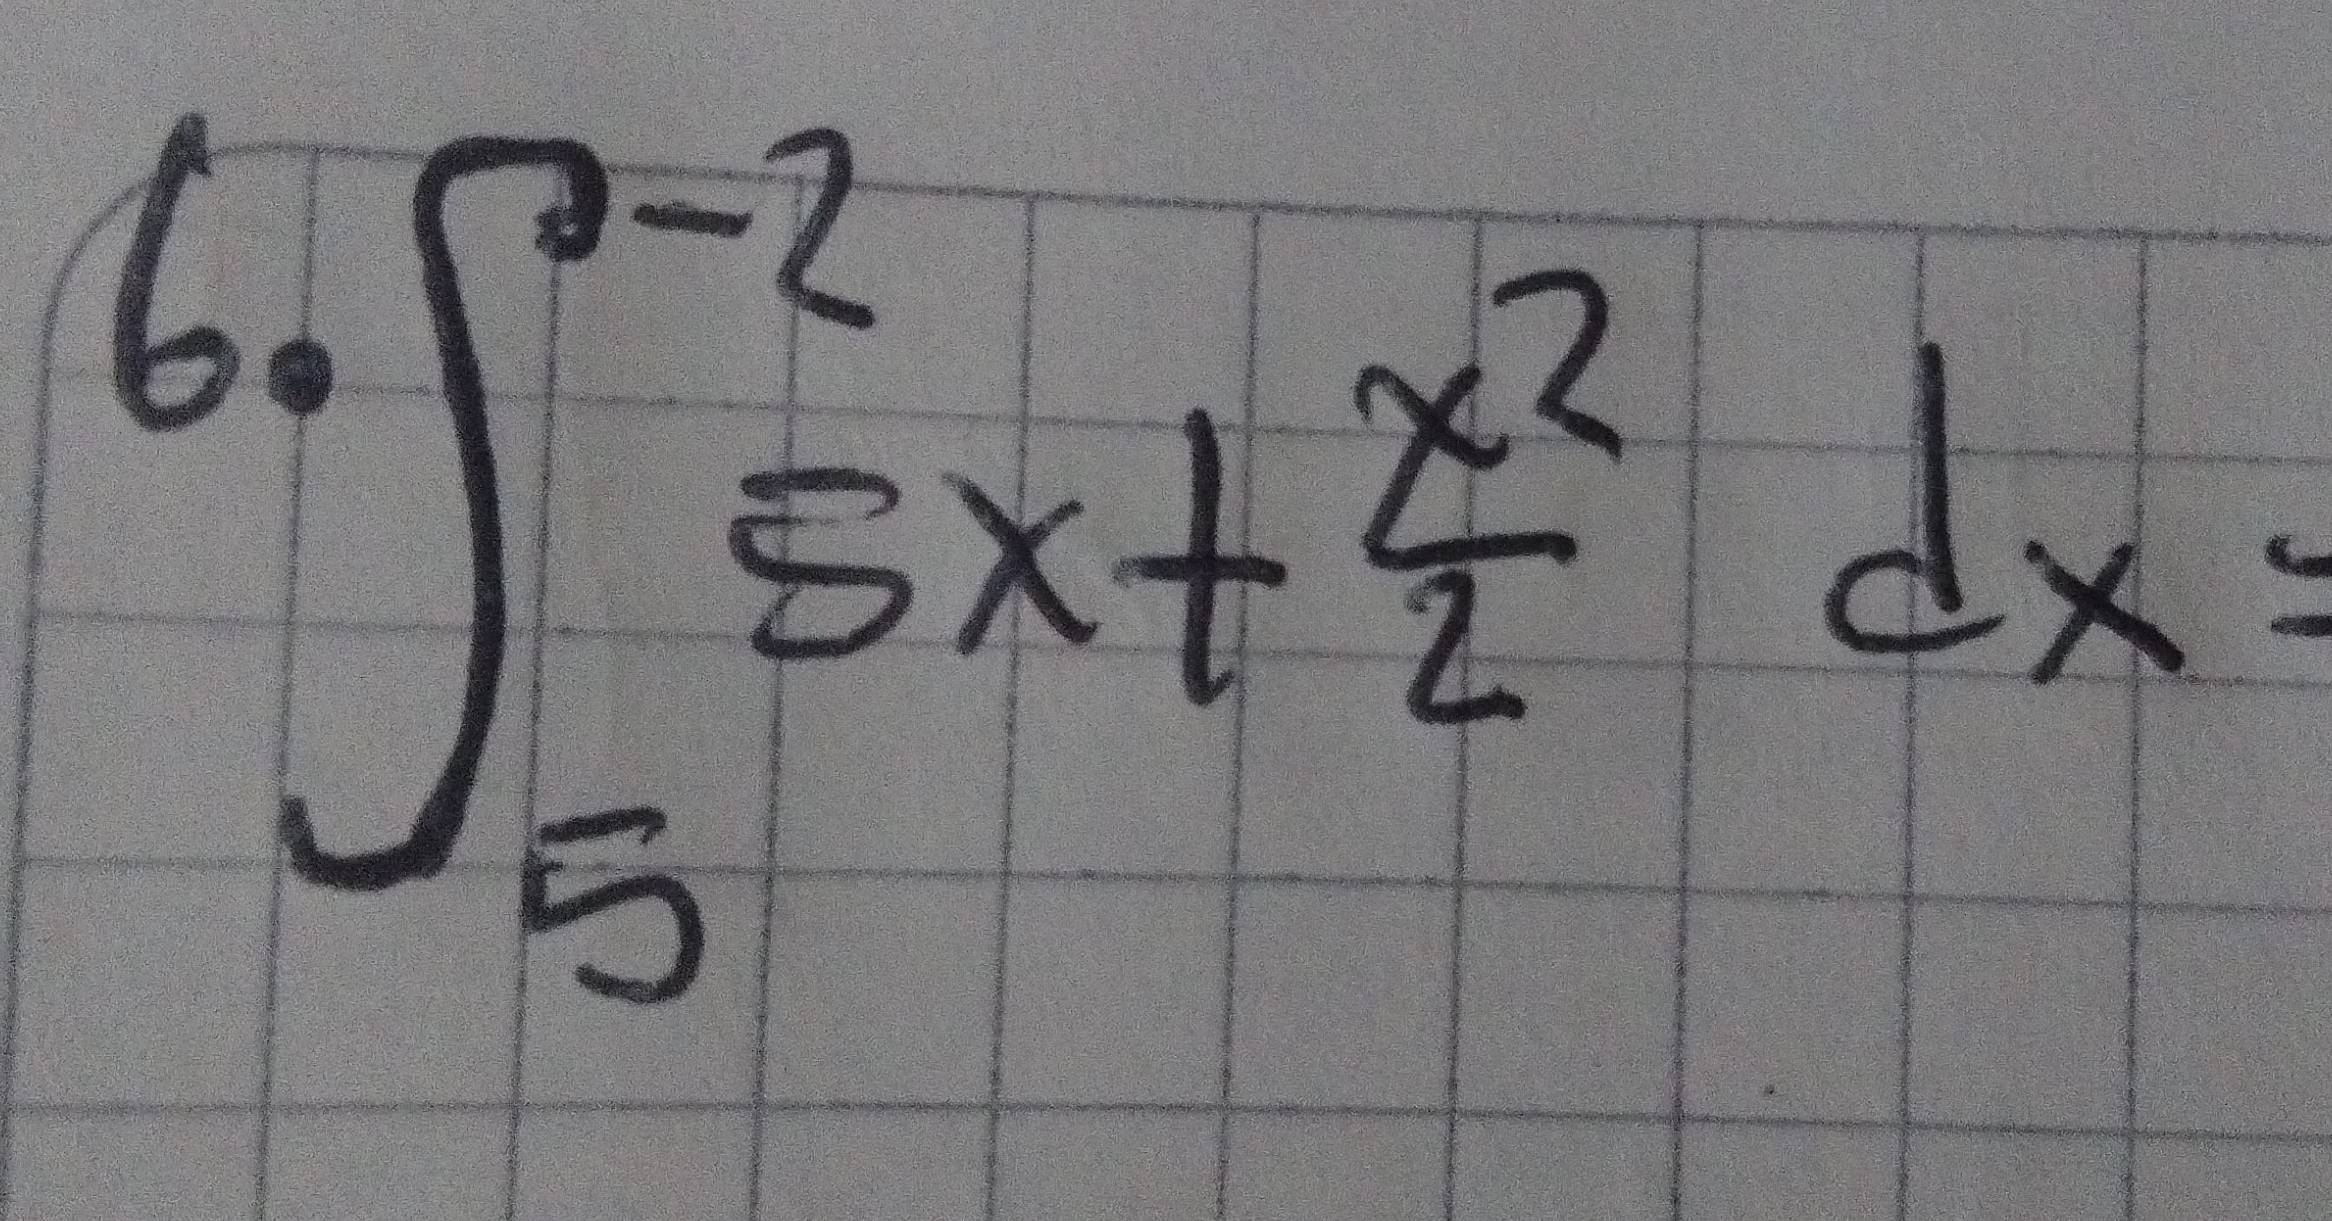 6. ∫_5^{-2} 5x + x²/2 dx =